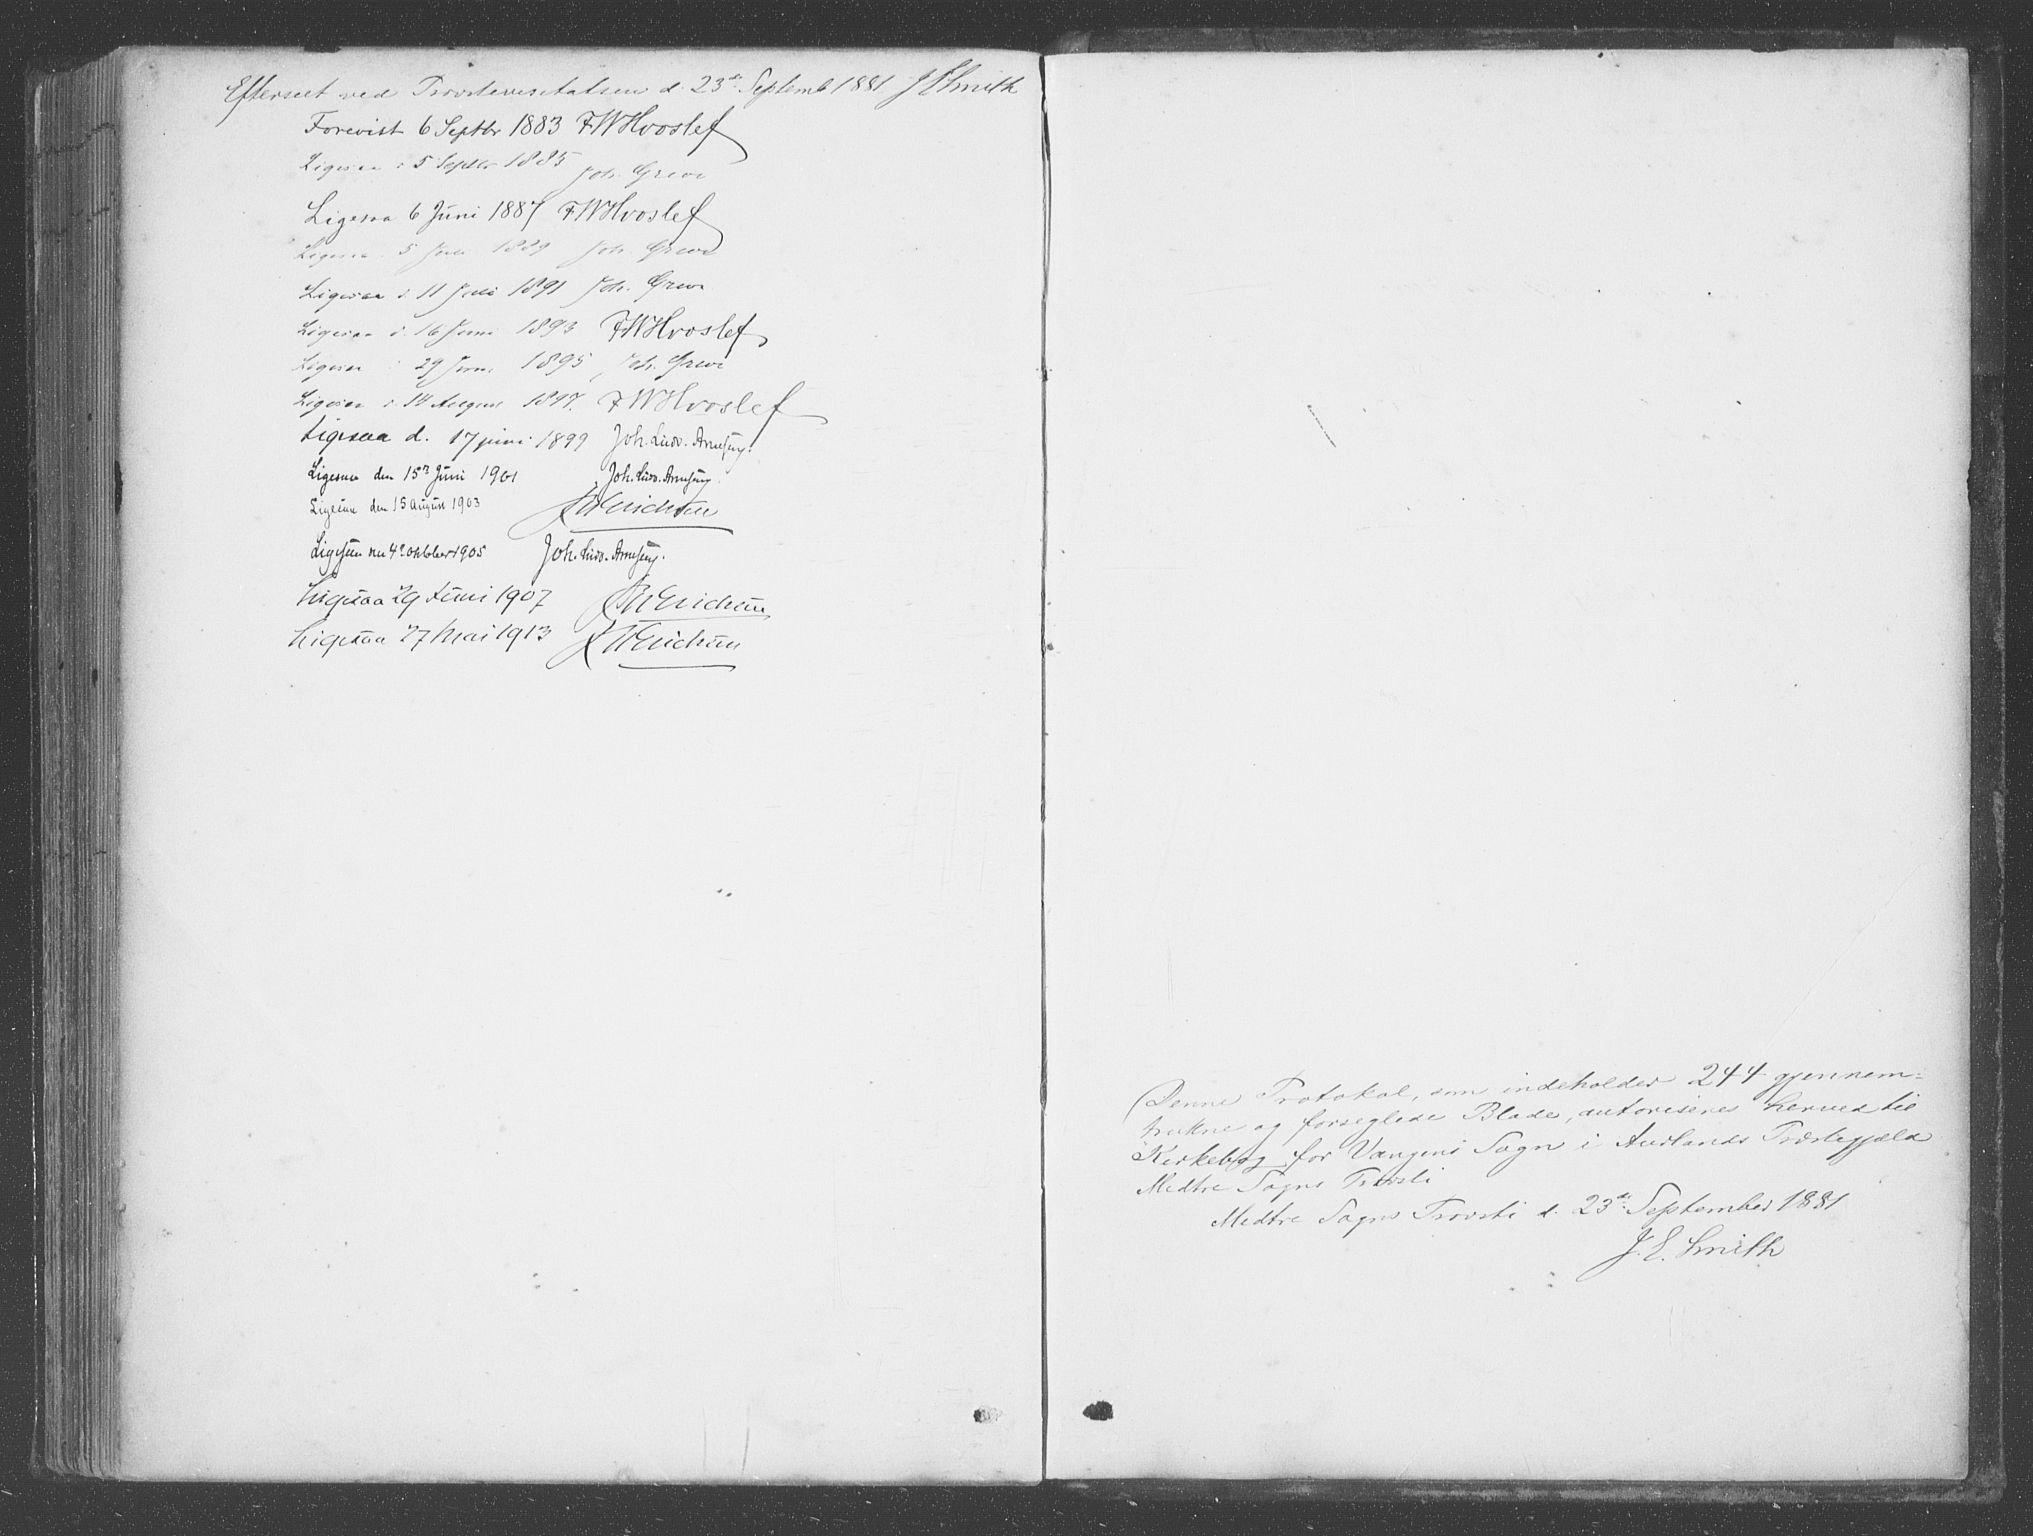 Efterseet ved Provstevisitatsen d. 23de Septemb 1881 J E Smith
Forevist 6 Septbr 1883 FWHvoslef
Ligesaa : 5 Septbr 1885 Joh. Greve
Ligesaa 6 Juni 1887 FWHvoslef
Ligesaa 5 Juli 1889 Joh. Greve
Ligesaa d. 11 Juli 1891 Joh. Greve
Ligesaa d. 16 Juni 1893 FWHvoslef
Ligesaa 29 Juni 1895, Joh. Greve
Ligesaa d 14 August 1897. FWHvoslef
Ligesaa d. 17 juni 1899 Joh. Ludv. Arnesen.
Ligesaa den 15de Juni 1901 Joh. Ludv. Arnesen.
Ligesaa den 15 August 1903
Ligesaa den 4de oktober 1905 Joh. Ludv. Arnesen.
Ligesaa 29 Juni 1907
Ligesaa 27 Mai 1913
Denne Protokol, som indeholder 244 gjennem=
trukne og forseglede Blade, autoriseres herved til
Kirkebog for Vangens Sogn i Aurlands Præstegjæld
Midtre Sogns Provsti
Midtre Sogns Provsti d. 23de September 1881
J. E. Smith